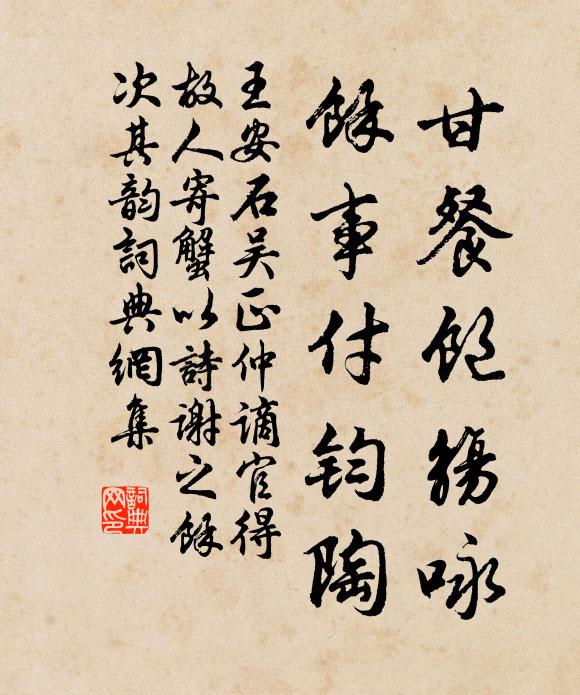 甘餐飽觴咏
餘事付鈞陶
王安石吴正仲謫官得
故人寄蟹以詩謝之餘
次其韵詞典網集
詞典
网印